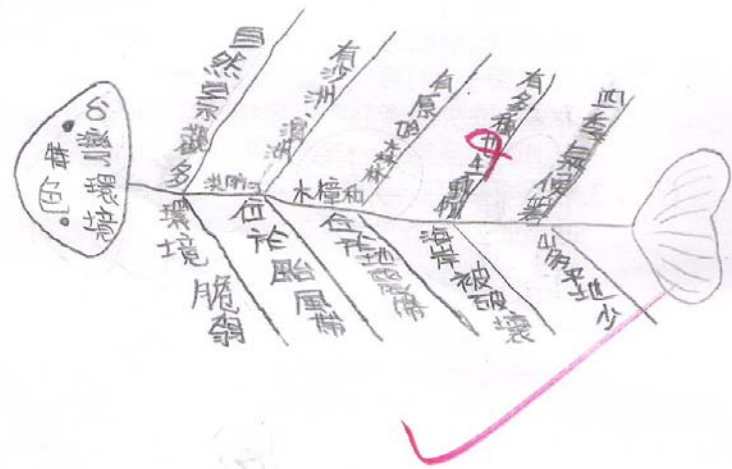 台灣環境
特色
自然景觀多
有沙洲、潟湖
有原始森林
有多種野生動物
四季氣候
環境脆弱
位於颱風帶
位於地震帶
海岸被破壞
平地少